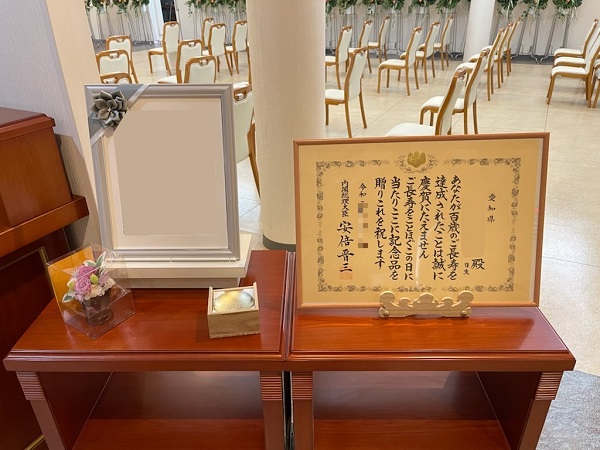 愛知県
殿
日生
あなたが百歳のご長寿を
達成されたことは誠に
慶賀にたえません
ご長寿をことほぐこの日に
当たりここに記念品を
贈りこれを祝します
令和
内閣総理大臣 安倍晋三